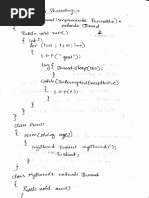 Threading :-
Thread (implements Runnable) &
extends Thread
Public void run()
{ int i;
for (i=0; i<10; i++)
{ S.O.P ("gud");
try { Thread.sleep(500);
}
catch (InterruptedException e)
{ }
}
}
}
class Demo
{
main (String args)
{ mythread t = new mythread();
t.start
}
}
class mythread extends Thread
{
Public void run()